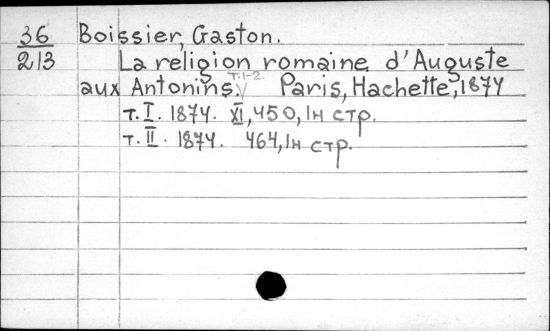 36 Boissier, Gaston.
213 La religion romaine d'Auguste
т.1-2.
aux Antonins. Paris, Hachette, 1874
т. I. 1874. XI, 450, 1н стр.
т. II. 1874. 464, 1н стр.